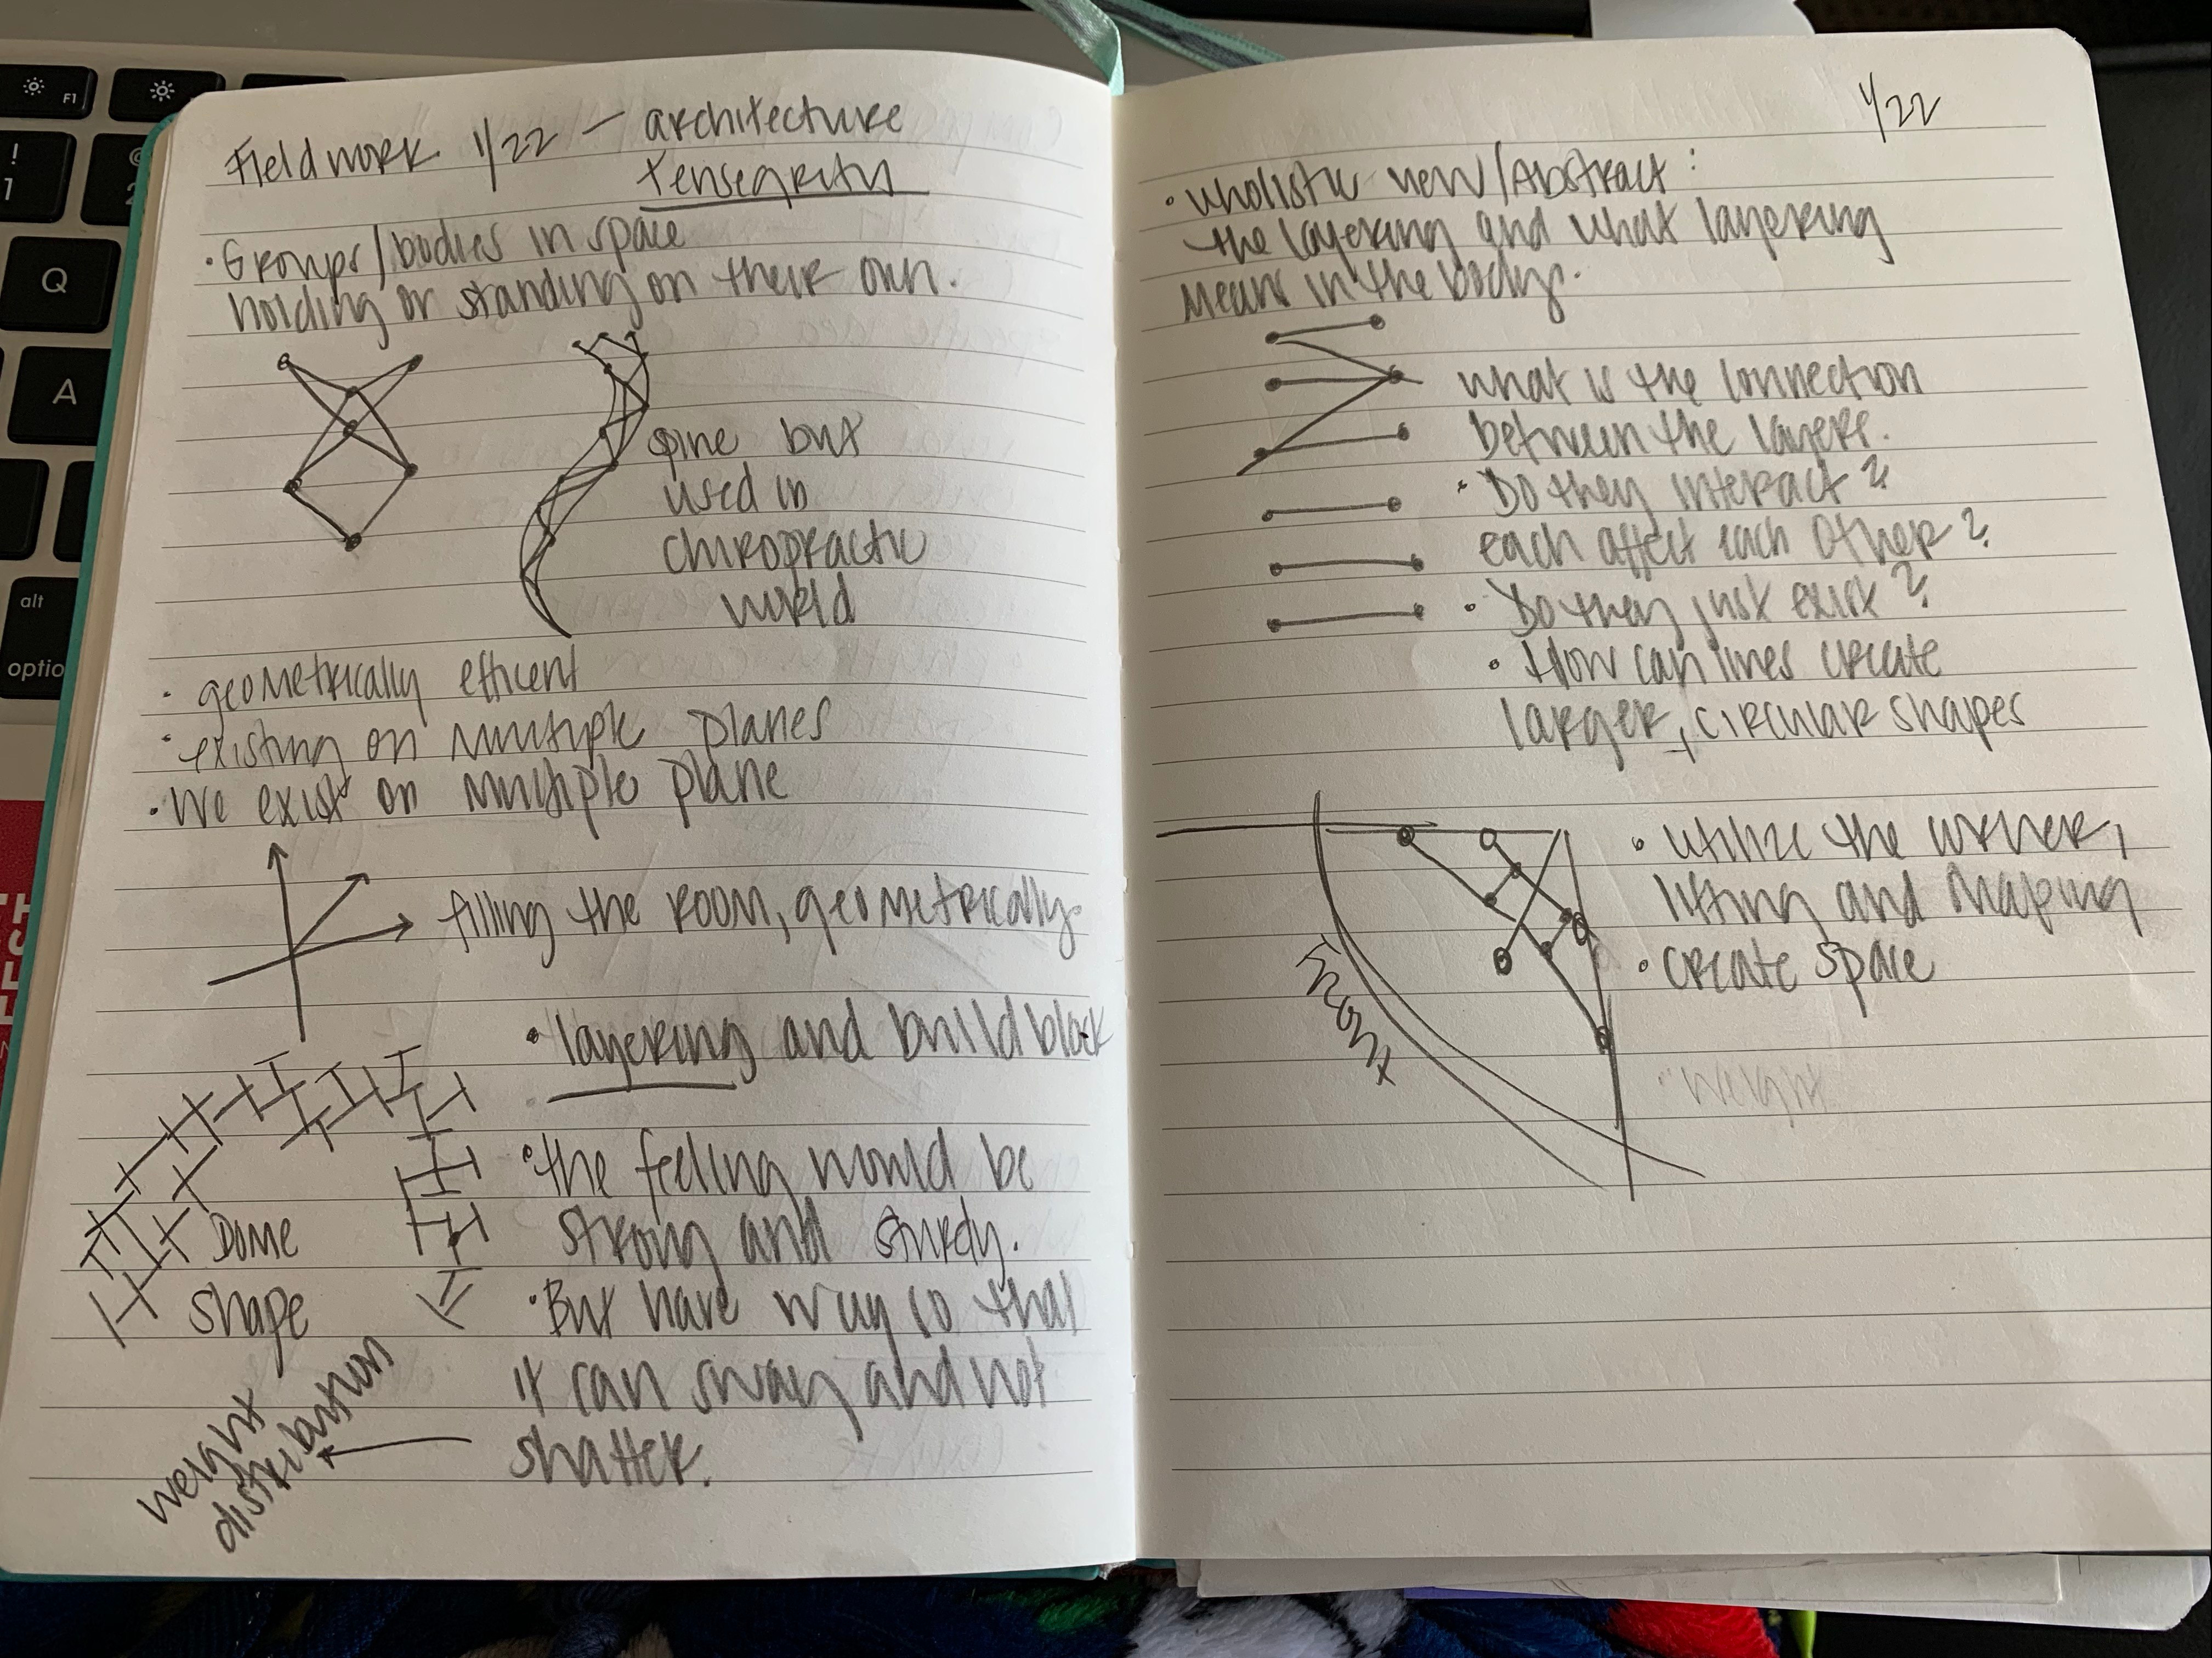 Fieldwork 1/22 — architecture
tensegrity
· Groups/bodies in space
holding or standing on their own.
spine but
used in
chiropractic
world
· geometrically efficent
· existing on multiple planes
· We exist on multiple plane
filling the room, geometrically
· layering and build block
· the feeling would be
strong and sturdy.
Dome
shape
· But have way so that
it can sway and not
shatter.
weight
distribution
1/22
· wholistic view/Abstract:
the layering and what layering
means in the body.
what is the connection
between the layers.
· Do they interact?
each affect each other?
· Do they just exist?
· How can lines create
larger, circular shapes
front
· utilize the corner,
lifting and shaping
· create space
· weight
F1
!
1
2
Q
A
alt
optio